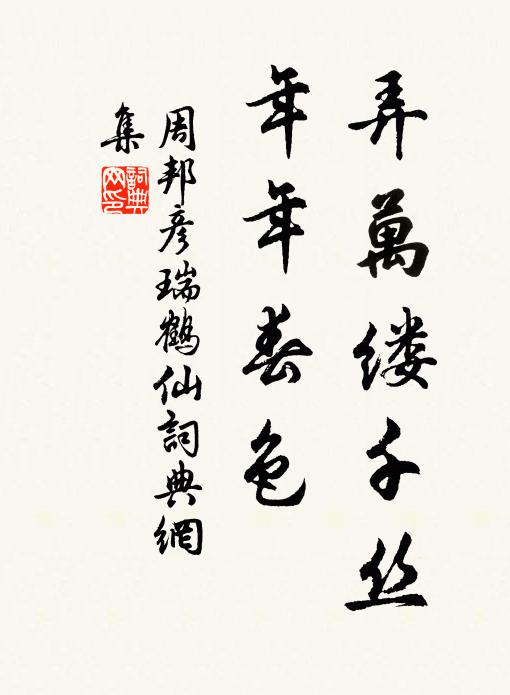 弄萬缕千丝
年年春色
周邦彦瑞鶴仙詞典網
集
詞典
网印